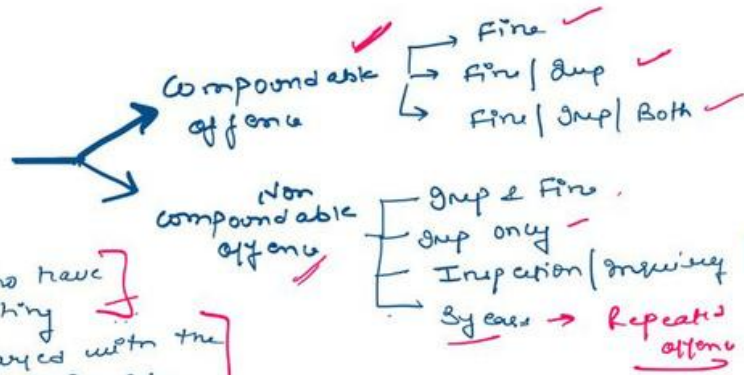 Compoundable
offence
Fine
Fine / Imp
Fine / Imp / Both
Non
compoundable
offence
Imp & Fine
Imp only
Inspection / Inquiry
3 years → Repeated
offence
have
with the